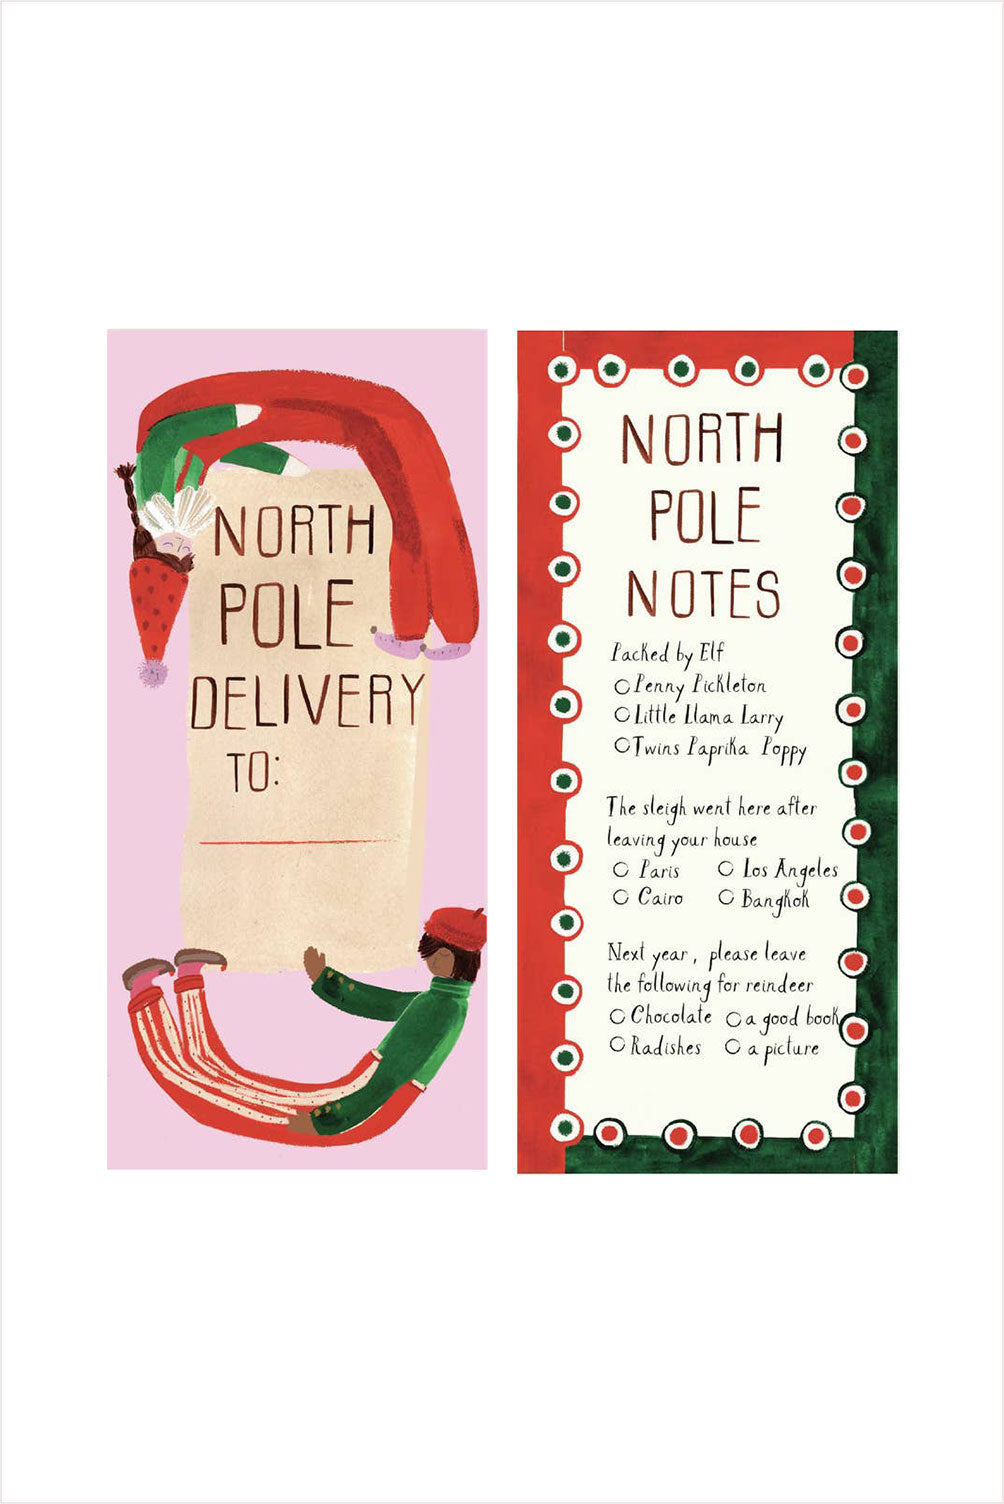 NORTH
POLE
DELIVERY
TO:
NORTH
POLE
NOTES
Packed by Elf
Penny Pickleton
Little Llama Larry
Twins Paprika Poppy
The sleigh went here after
leaving your house
Paris Los Angeles
Cairo Bangkok
Next year, please leave
the following for reindeer
Chocolate a good book
Radishes a picture